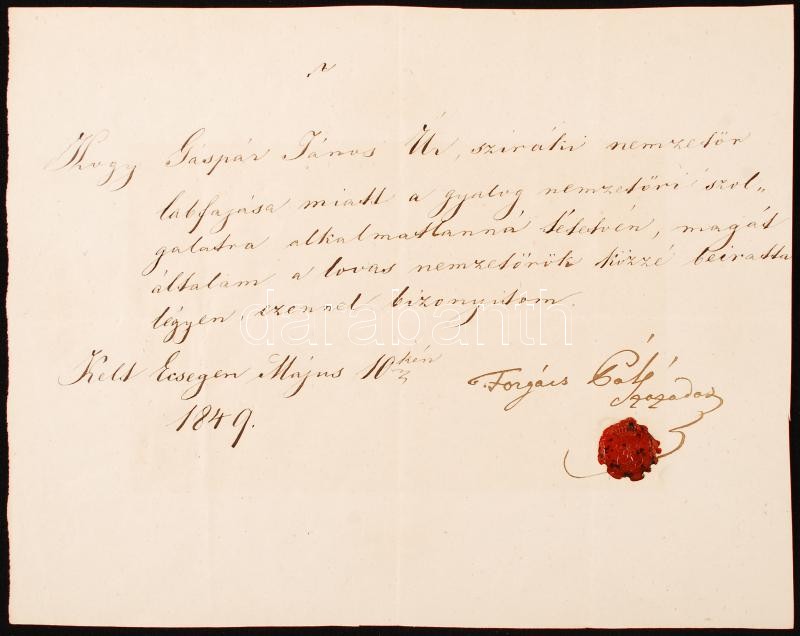 Hogy Gáspár János Úr, sziráki nemzetőr
lábfajása miatt a gyalog nemzetőri szol„
gálatra alkalmatlanná tétetvén, magát
általam a lovas nemzetőrök közzé beiratta
légyen, ezennel bizonyitom.
darabanth
Kelt Ecsegen Május 10kén
1849.
Forgács
Százados